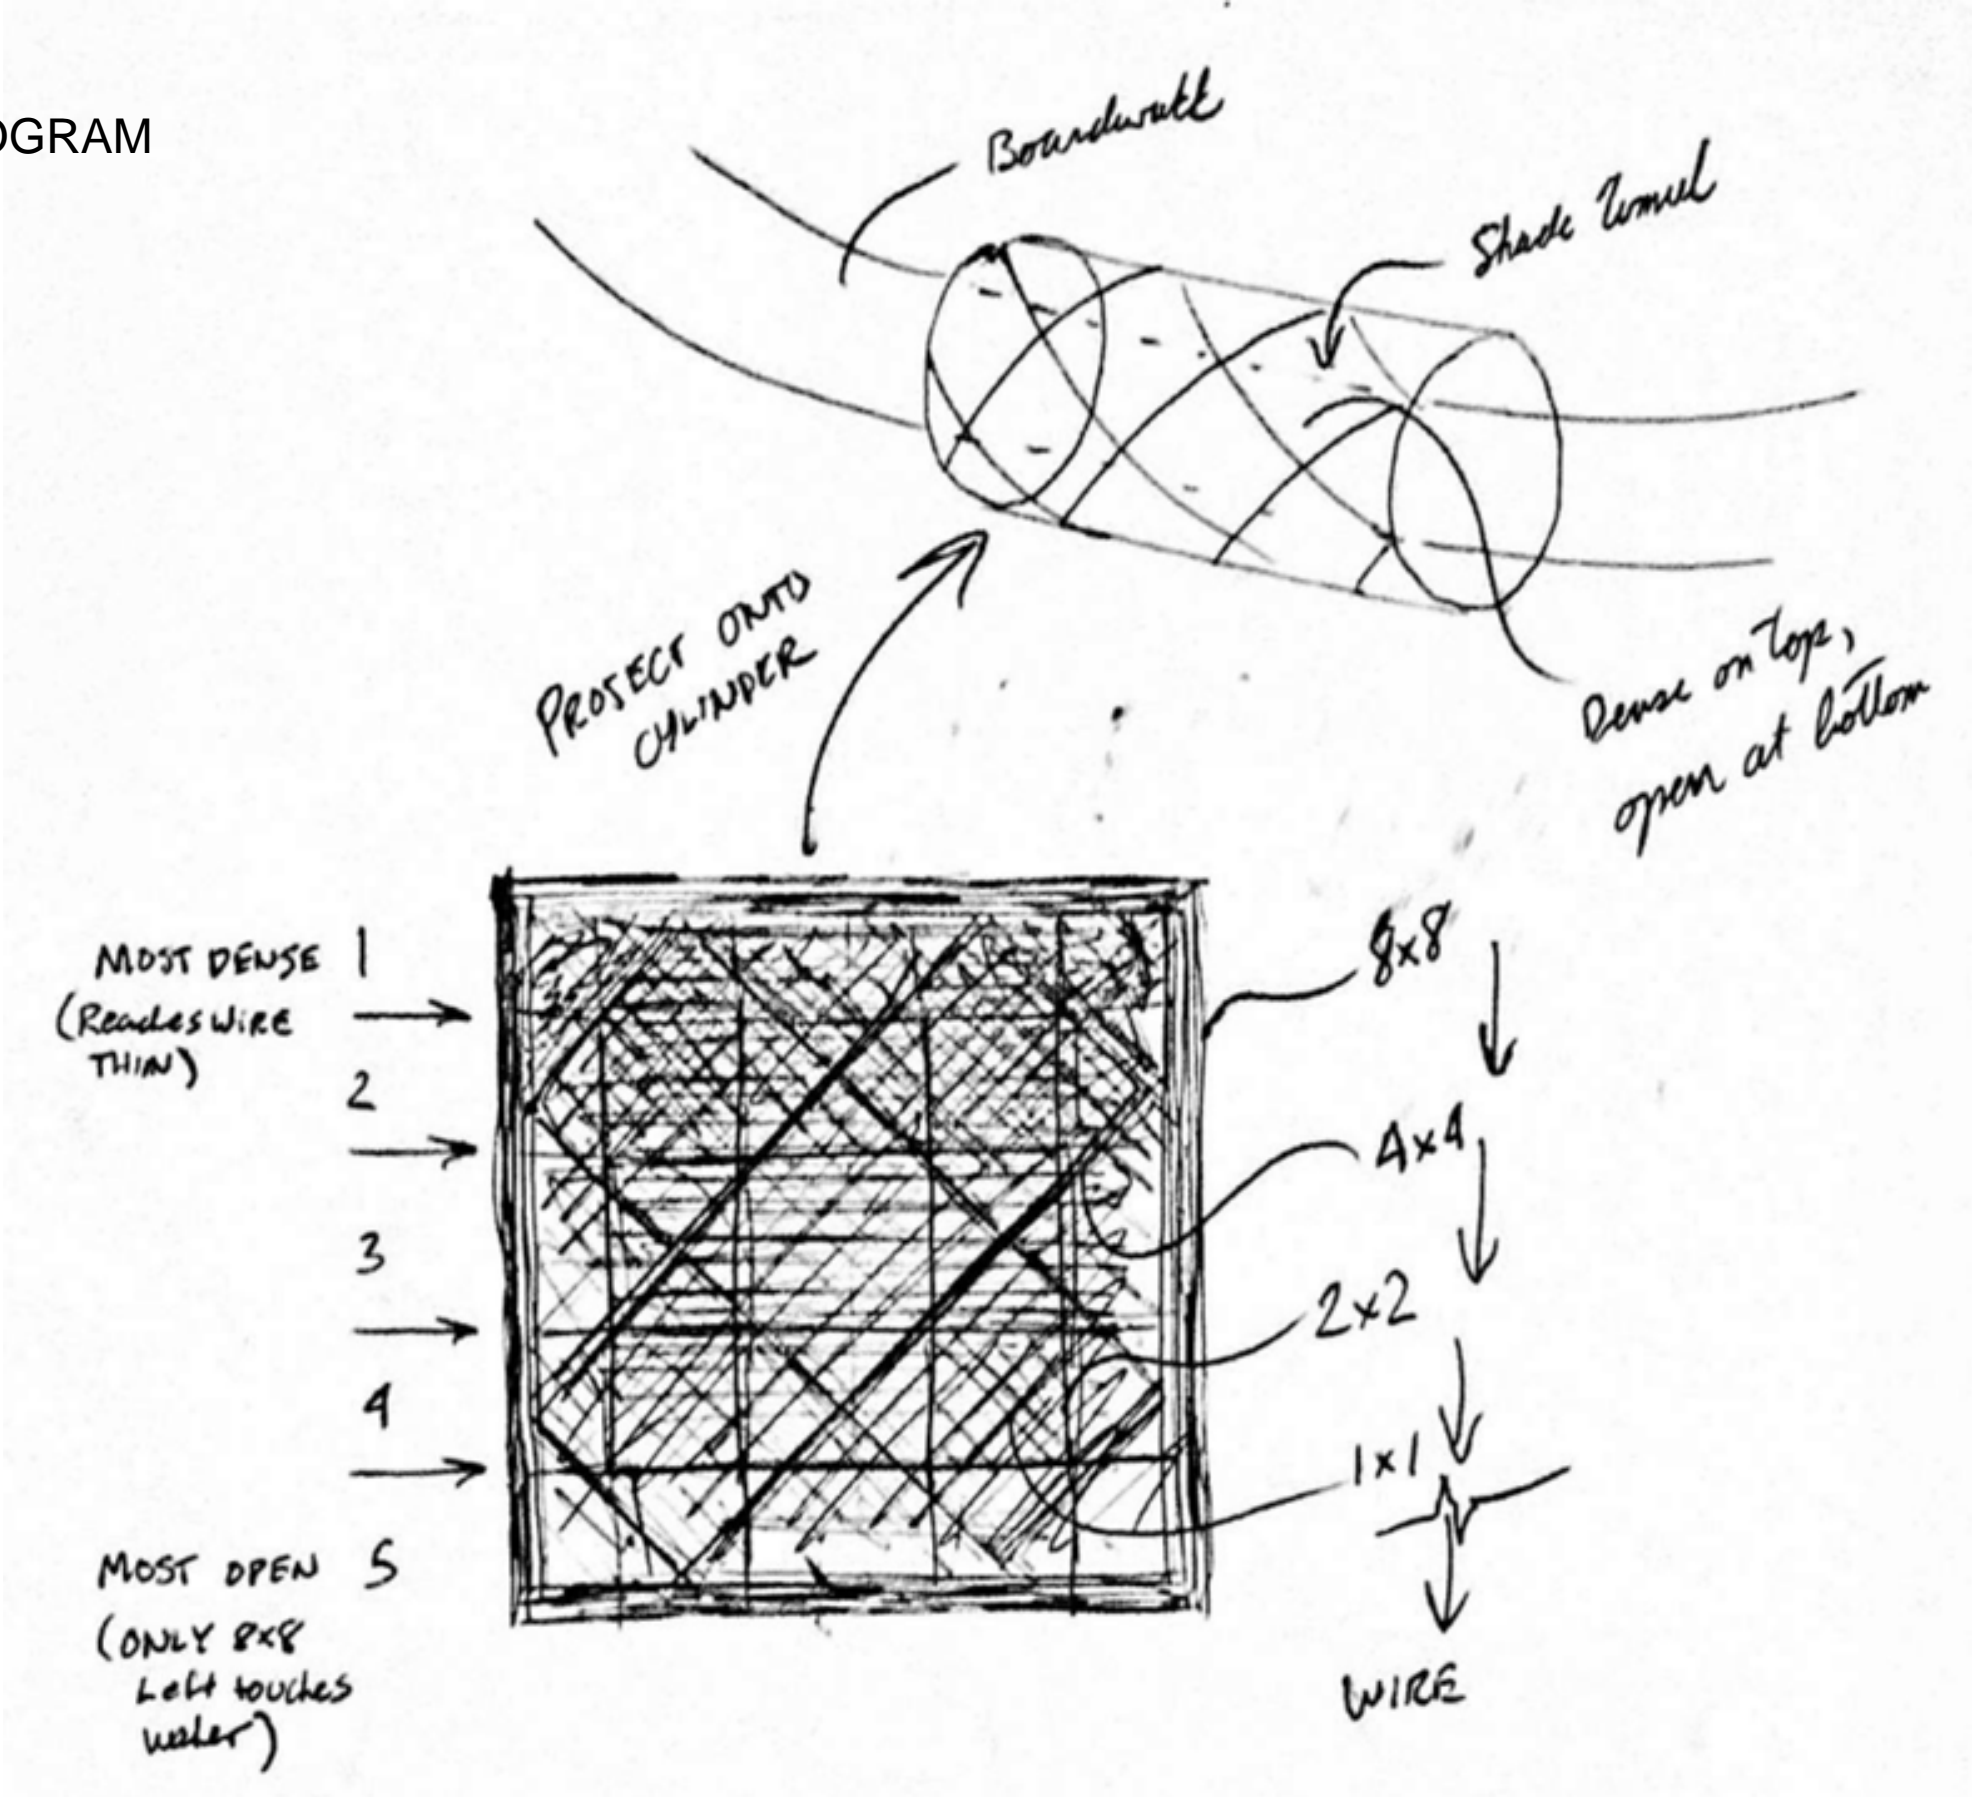 OGRAM
Boardwalk
Shade Tunnel
PROJECT ONTO
CYLINDER
Dense on top,
open at bottom
MOST DENSE 1
(Reaches WIRE
THIN)
2
3
4
MOST OPEN 5
(ONLY 8x8
Left touches
water)
8x8
4x4
2x2
1x1
WIRE